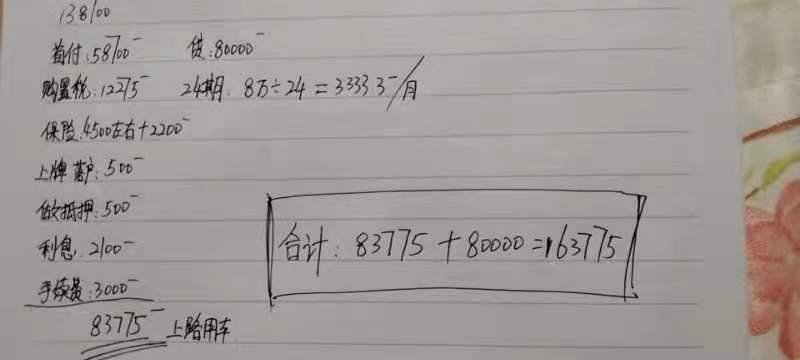 138700
首付:58700 贷:80000
购置税:12275 24期: 8万÷24=3333.3/月
保险:4500左右+2200
上牌落户:500
做抵押:500
利息:2100
手续费:3000
83775 上路用车
合计: 83775+80000=163775